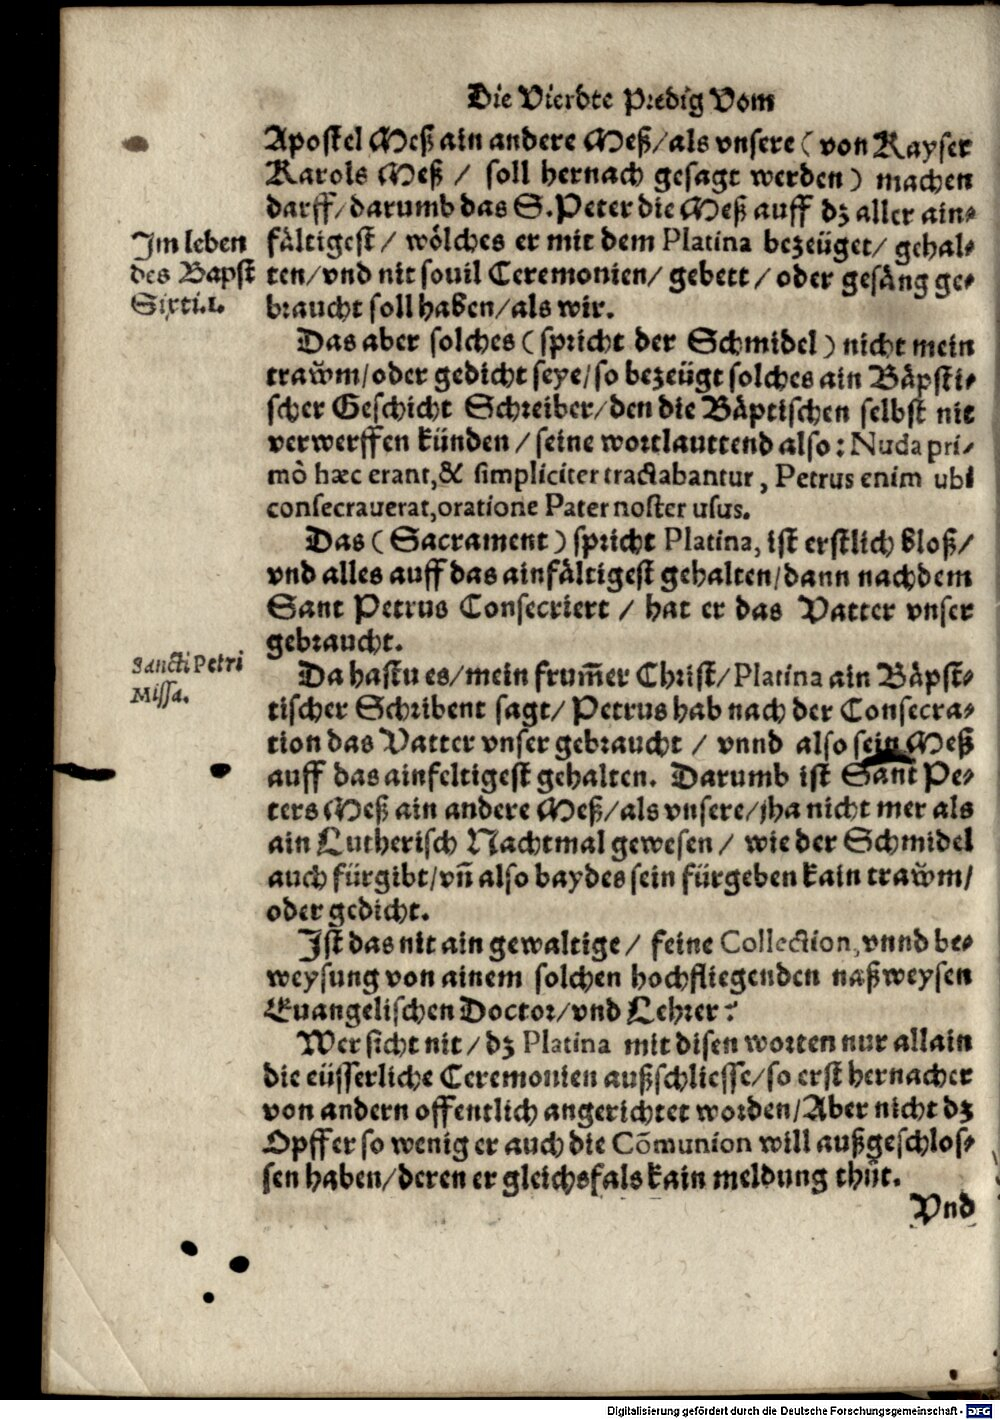 Die Vierdte Predig Vom
Apostel Meß ain andere Meß/als vnsere (von Kayser
Karols Meß / soll hernach gesagt werden) machen
darff/darumb das S.Peter die Meß auff dz aller ain-
Im leben
des Bapst
Sixti.1.
fältigest / wölches er mit dem Platina bezeüget/ gehal-
ten/vnd nit souil Ceremonien/ gebett / oder gesäng ge-
braucht soll haben/als wir.
Das aber solches (spricht der Schmidel) nicht mein
trawm/oder gedicht seye/so bezeügt solches ain Bäpsti-
scher Geschicht Schreiber/den die Bäptischen selbst nit
verwerffen künden / seine wortlauttend also: Nuda pri-
mò hæc erant,& simpliciter tractabantur, Petrus enim ubi
consecrauerat,oratione Pater noster usus.
Das (Sacrament) spricht Platina, ist erstlich bloß/
vnd alles auff das ainfältigest gehalten/dann nachdem
Sant Petrus Consecriert / hat er das Vatter vnser
gebraucht.
Sancti Petri
Missa.
Da hastu es/mein frum̃er Christ/Platina ain Bäpst-
tischer Schribent sagt/ Petrus hab nach der Consecra-
tion das Vatter vnser gebraucht / vnnd also sein Meß
auff das ainfeltigest gehalten. Darumb ist Sant Pe-
ters Meß ain andere Meß/als vnsere/jha nicht mer als
ain Lutherisch Nachtmal gewesen / wie der Schmidel
auch fürgibt/vñ also baydes sein fürgeben kain trawm/
oder gedicht.
Ist das nit ain gewaltige/ feine Collection, vnnd be-
weysung von ainem solchen hochfliegenden naßweysen
Euangelischen Doctor/vnd Lehrer?
Wer sicht nit / dz Platina mit disen worten nur allain
die eüsserliche Ceremonien außschliesse/so erst hernacher
von andern offentlich angerichtet worden/Aber nicht dz
Opffer so wenig er auch die Cõmunion will außgeschlos-
sen haben/deren er gleichsfals kain meldung thůt.
Vnd
Digitalisierung gefördert durch die Deutsche Forschungsgemeinschaft - DFG